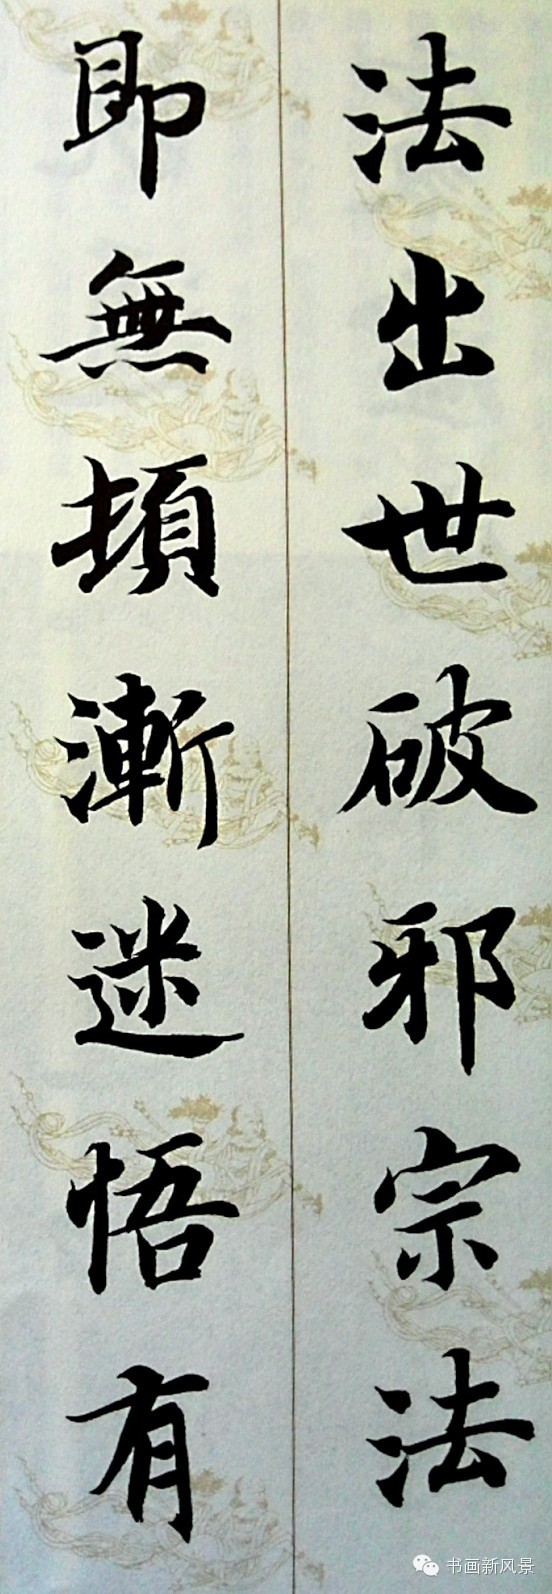 法出世破邪宗法
即無頓漸迷悟有
书画新风景